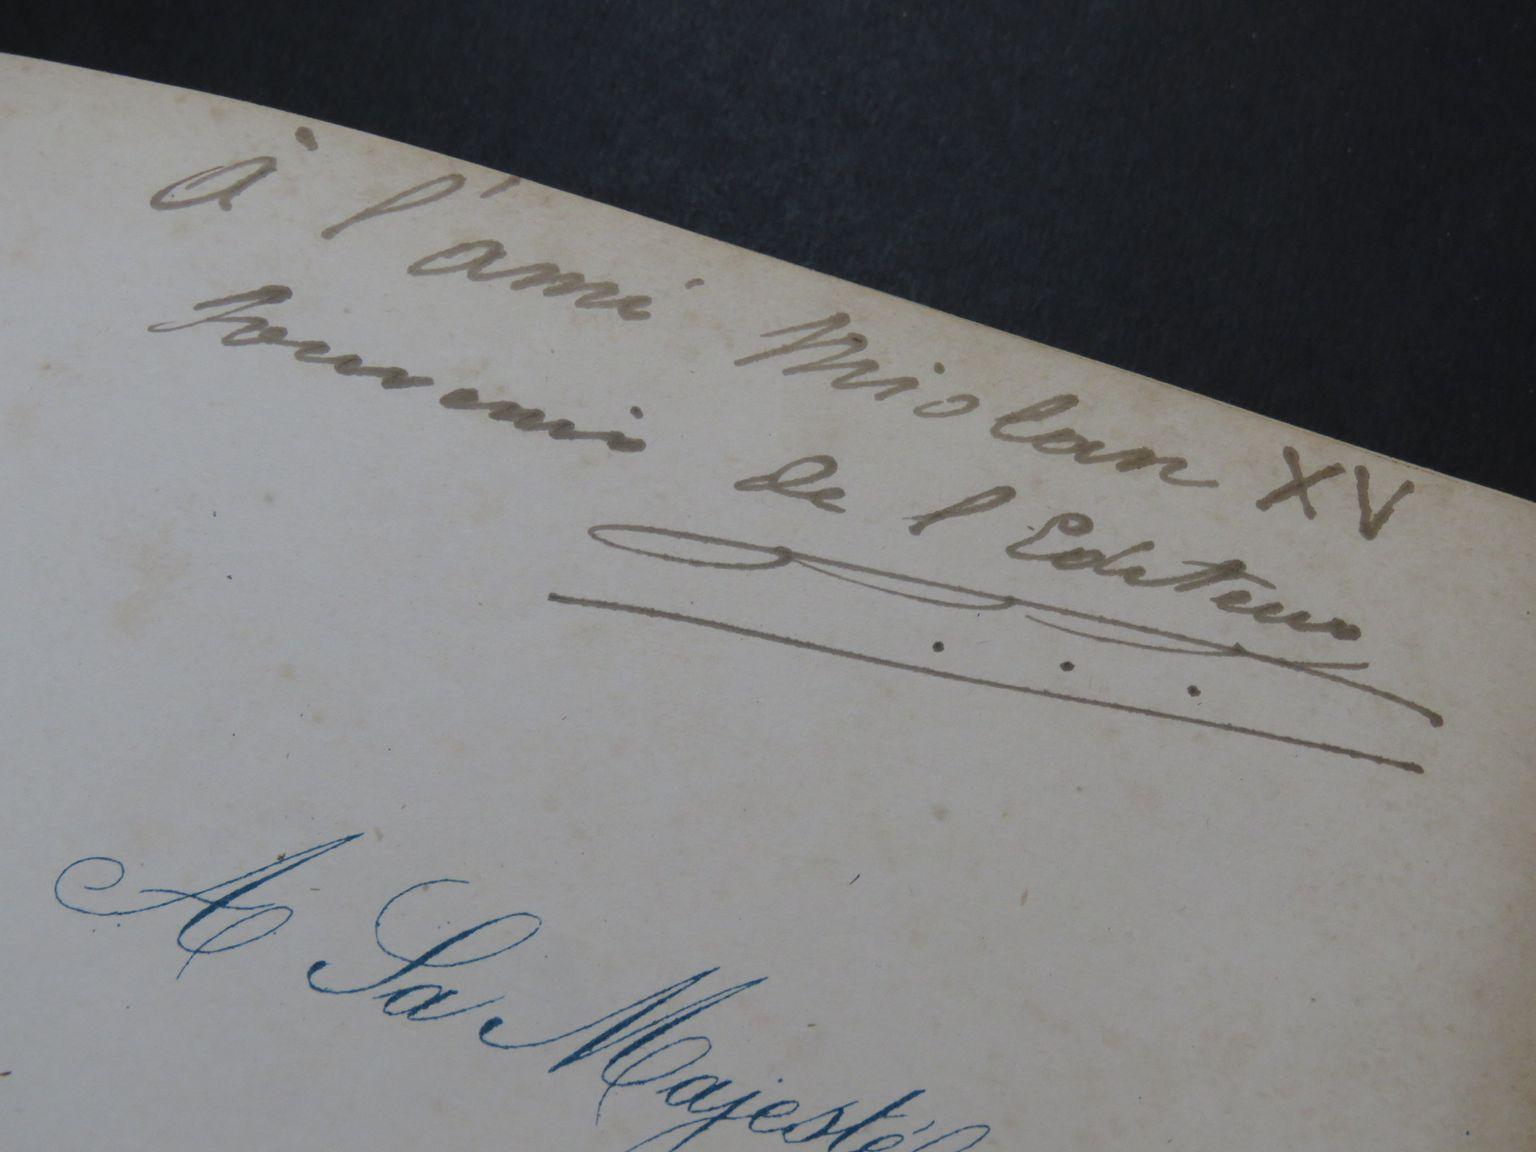 à l'ami Miolan XV
Souvenir de l'Editeur
A Sa Majesté